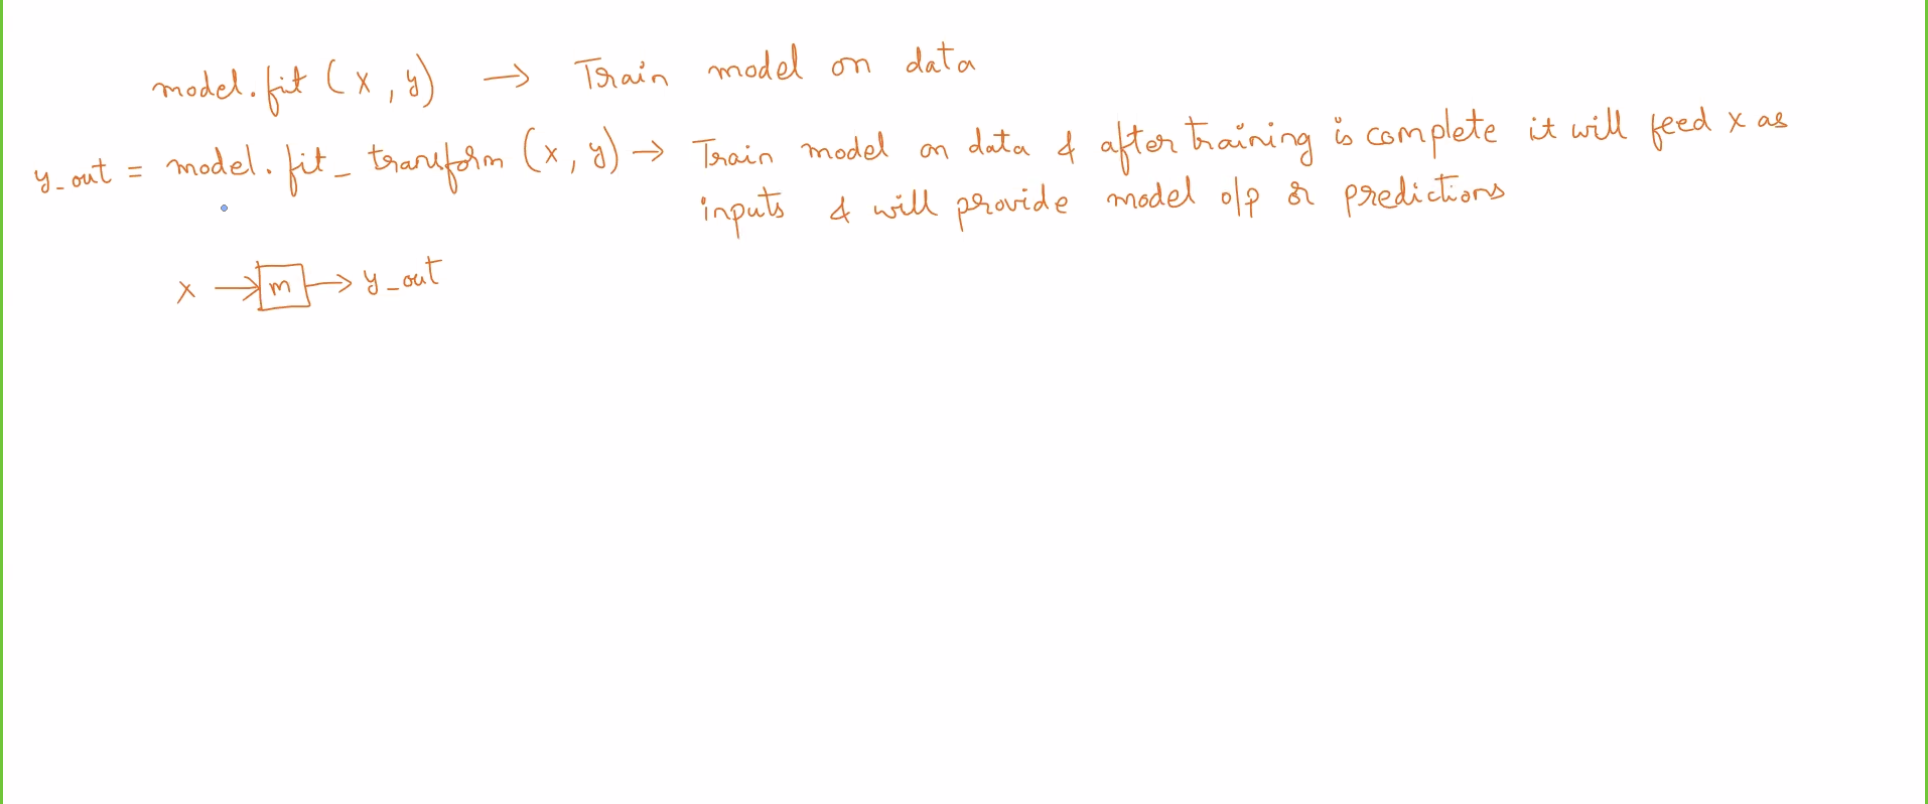 model.fit (x, y) → Train model on data
y_out = model.fit_transform (x, y) → Train model on data & after training is complete it will feed x as
inputs & will provide model o/p or predictions
x → m → y_out